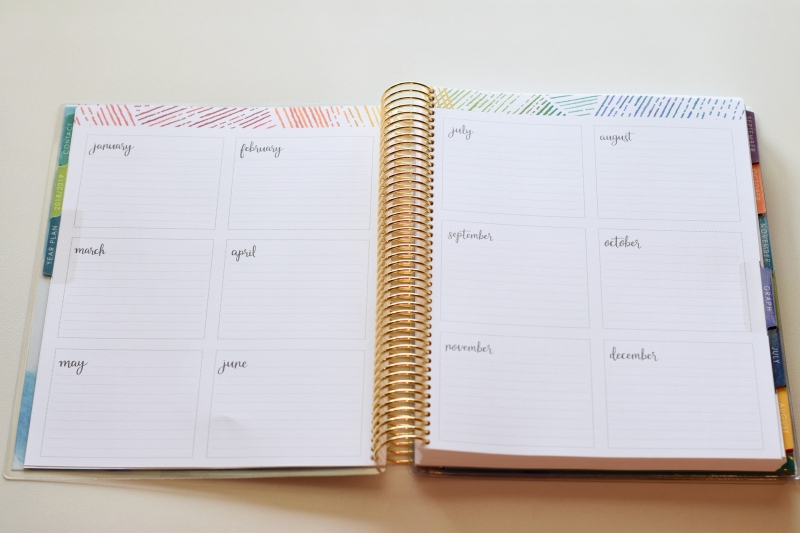 january
february
march
april
may
june
july
august
september
october
november
december
CONTACTS
YEAR PLAN
SEPTEMBER
NOVEMBER
GRAPH
JULY